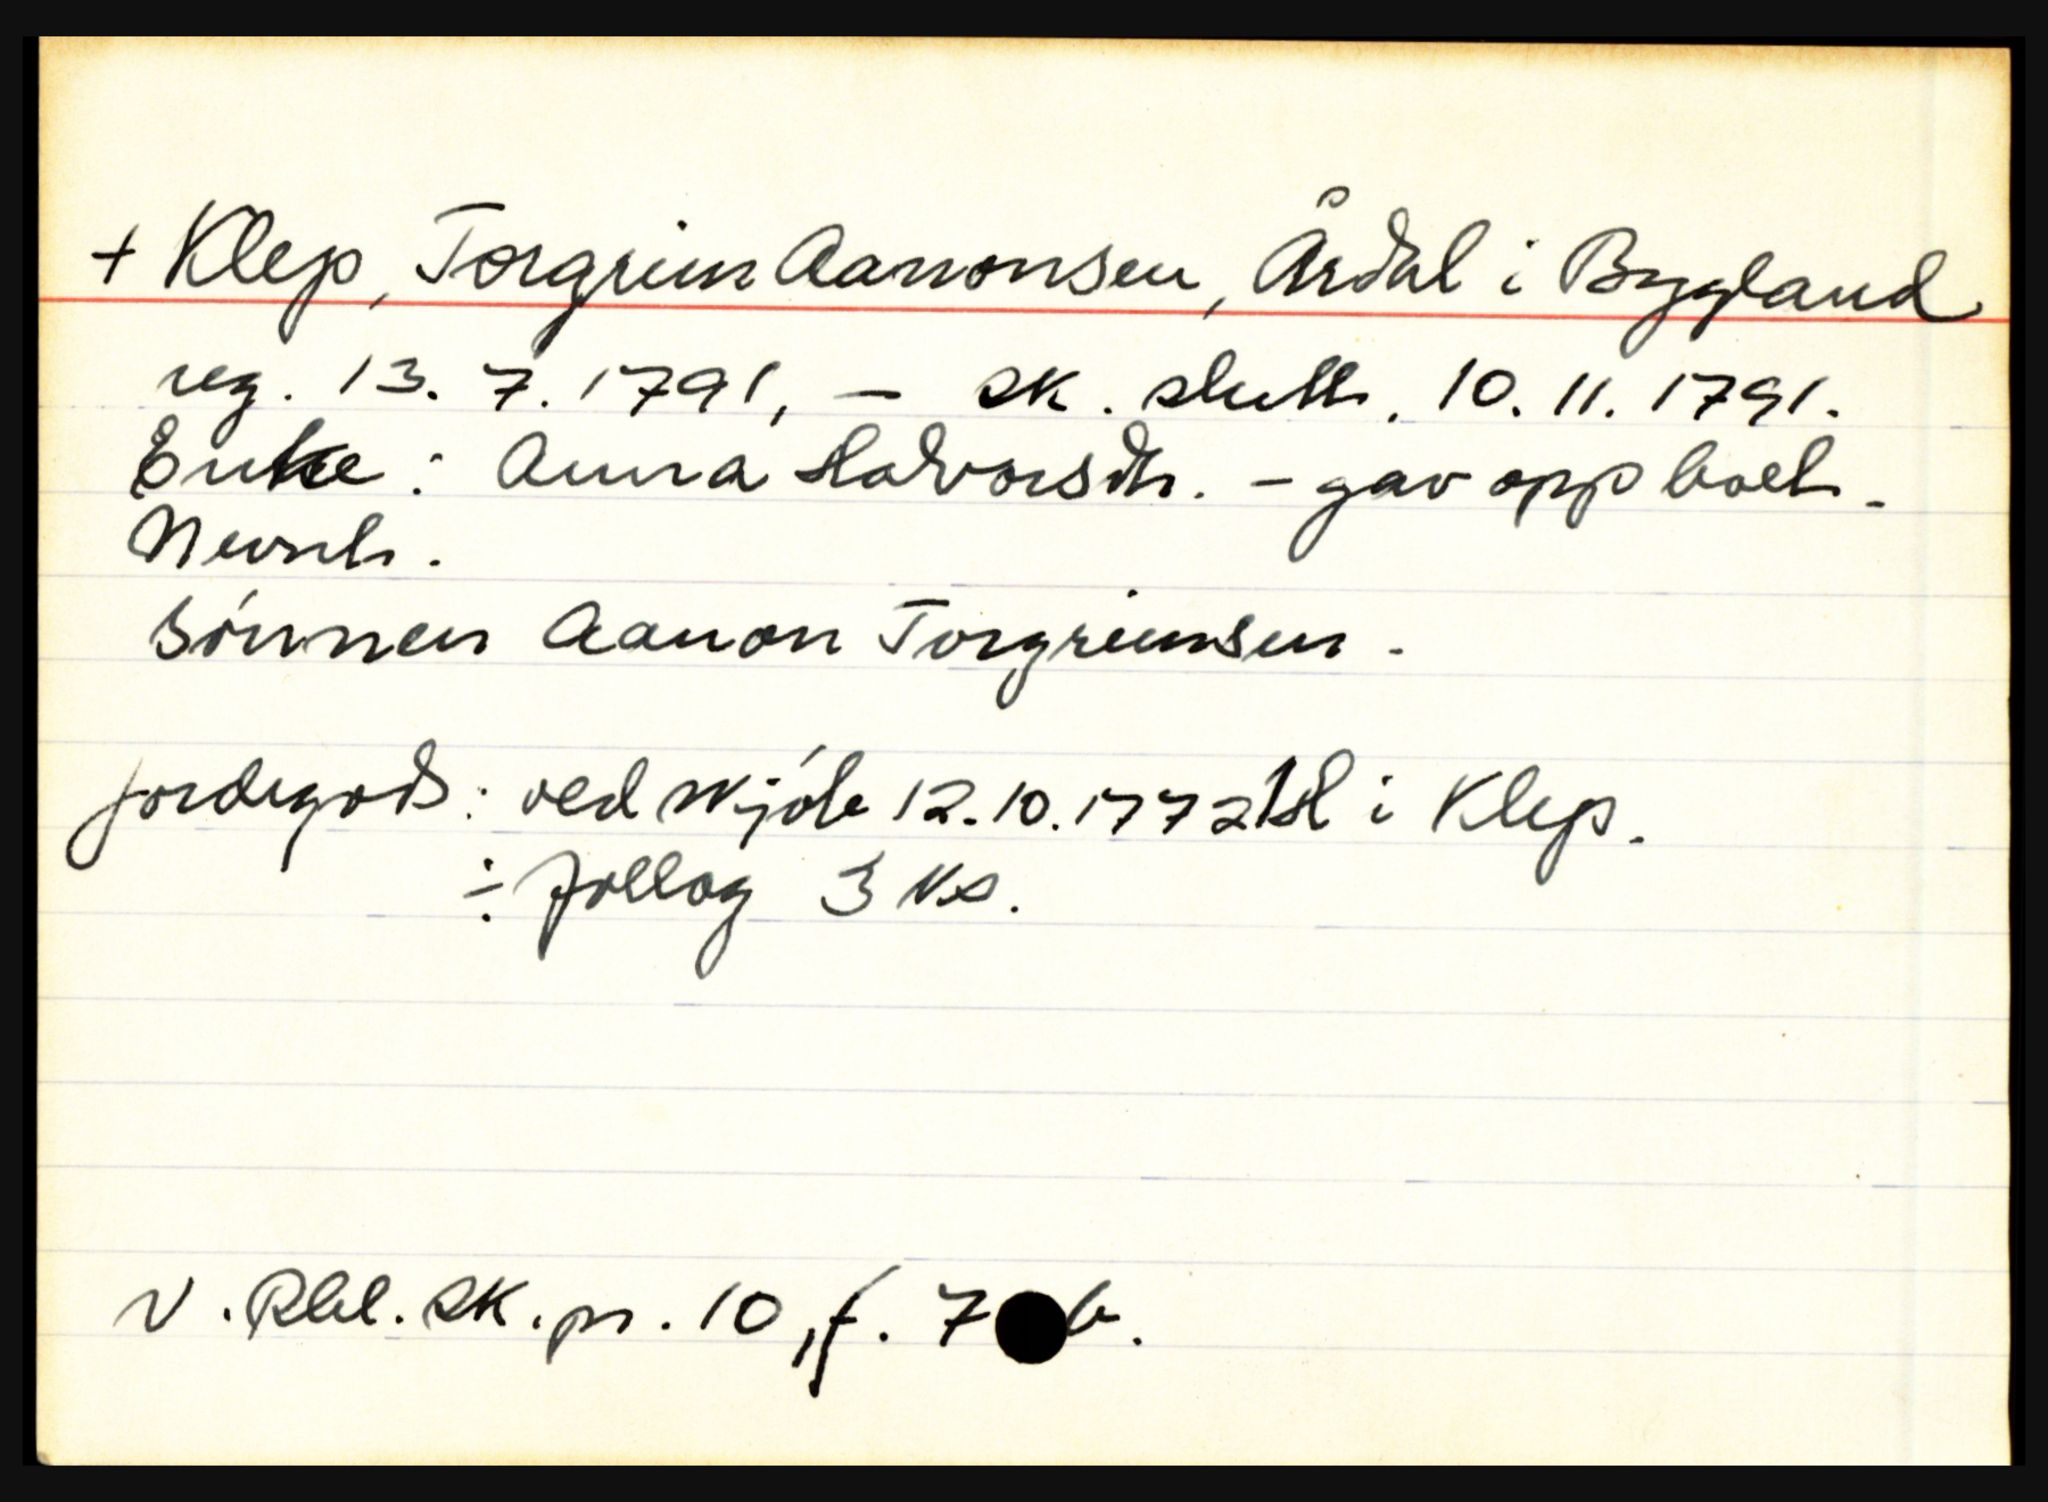 + Klep, Torgrim Aanonsen, Årdal i Bygland
reg. 13. 7. 1791, - sk. slutt. 10. 11. 1791.
Enke: Anna Halvorsdtr. - gav opp boet.
Nevnt.
Sönnen Aanon Torgrimsen.
Jordegods: ved skjöte 12.10.1772 1 hd i Klep.
÷ follog 3 ks.
V. Rbl. sk. pr. 10, f. 7 b.